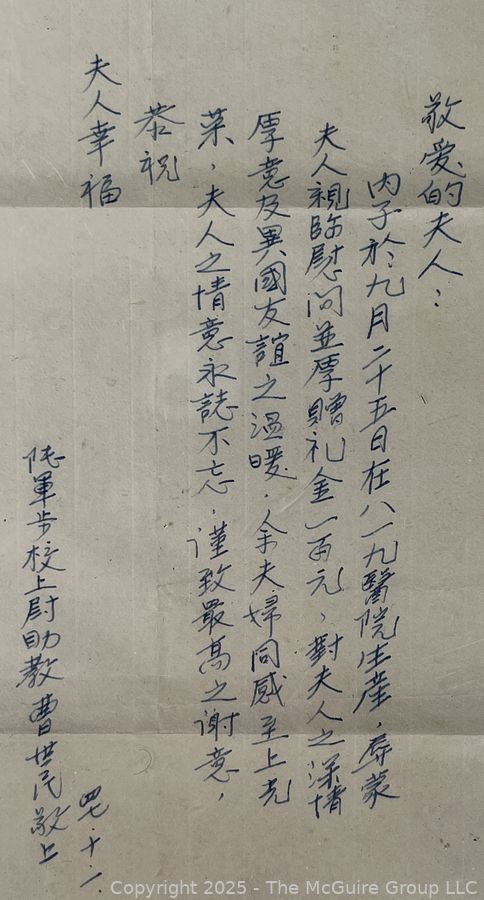 敬爱的夫人：
內子於九月二十五日在八一九醫院生產，辱蒙
夫人親臨慰问並厚贈礼金一百元，對夫人之深情
厚意及異國友誼之溫暖，余夫婦同感至上光
荣，夫人之情意永誌不忘，谨致最高之谢意，
恭祝
夫人幸福
陆軍步校上尉助教 曹世民敬上
四七．十．一．
Copyright 2025 - The McGuire Group LLC